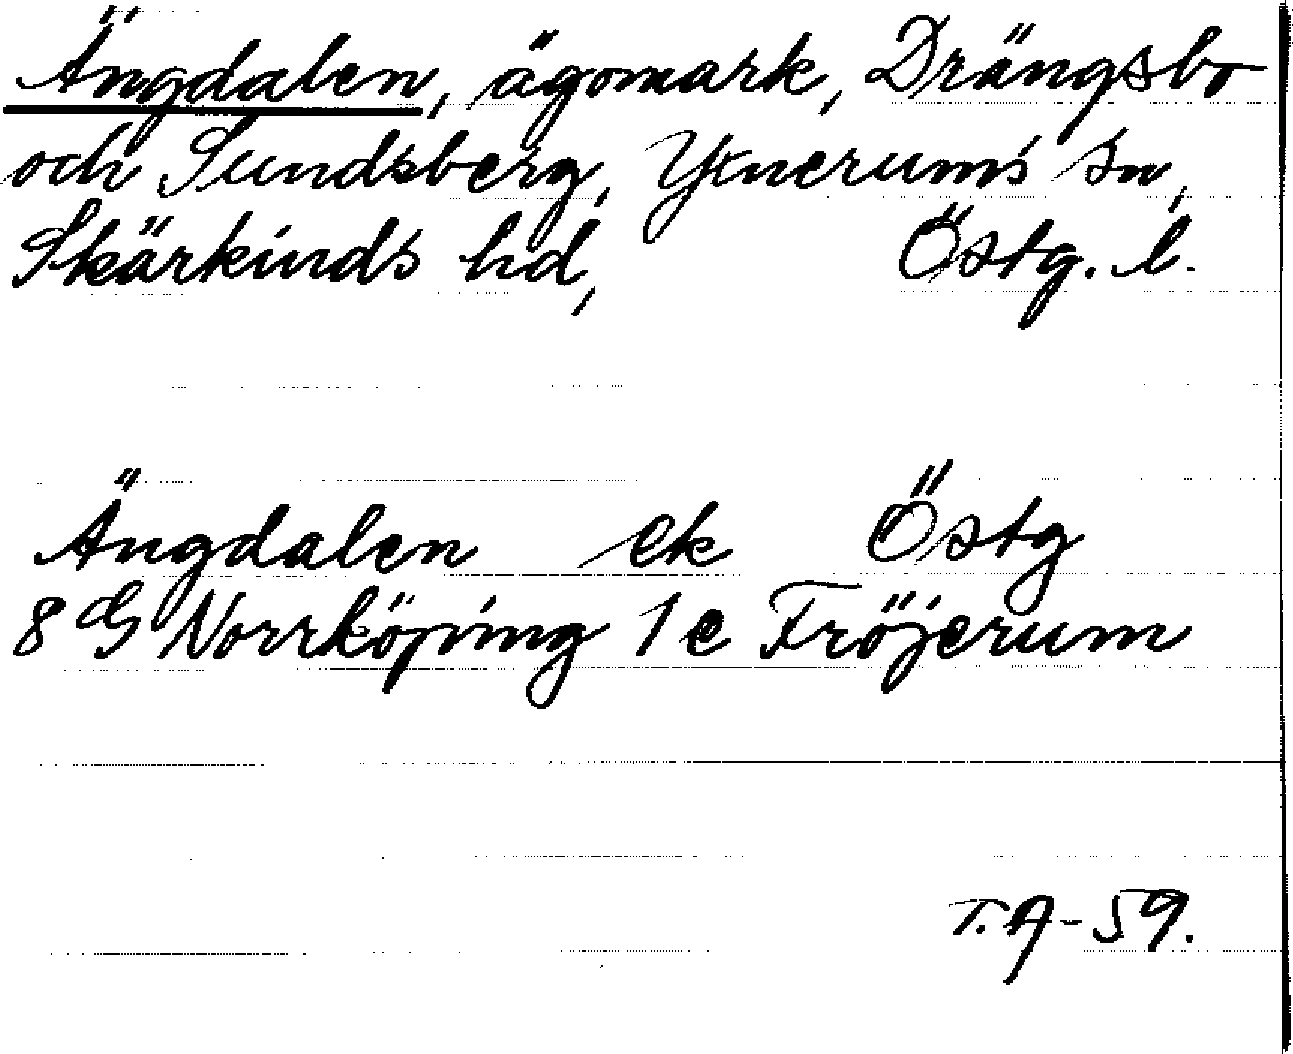 Ängdalen, ägomark, Drängsbo
och Sundsberg, Yxnerums sn,
Skärkinds hd, Östg. l.
Ängdalen ek Östg
8 G Norrköping 1 e Fröjerum
T.A-59.